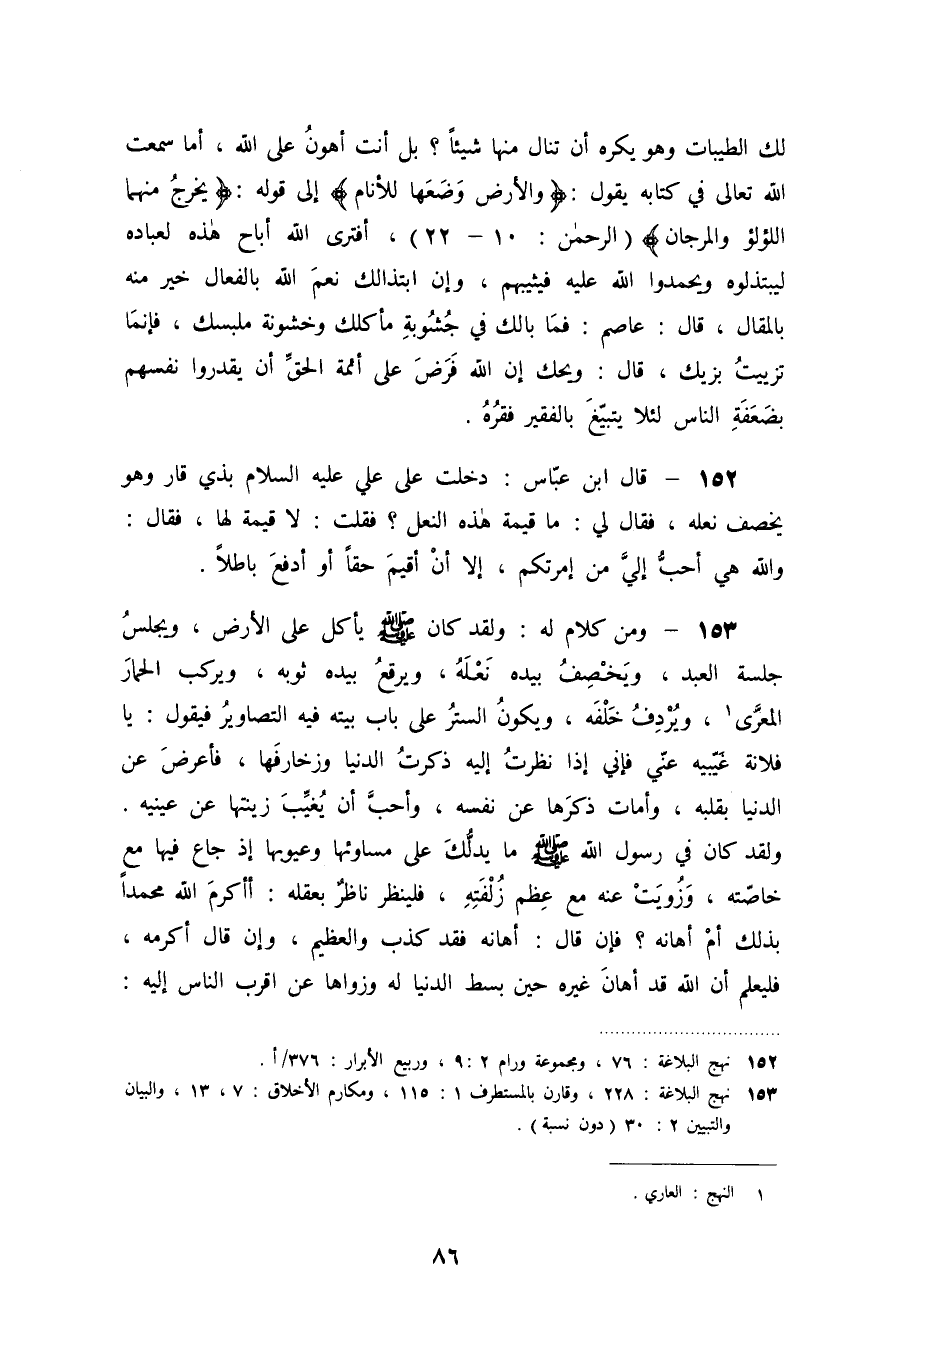 لك الطيبات وهو يكره أن تنال منها شيئاً ؟ بل أنت أهونُ على الله ، أما سمعت
الله تعالى في كتابه يقول :﴿ والأرض وَضَعَها للأنام ﴾ إلى قوله :﴿ يخرجُ منهما
اللؤلؤ والمرجان ﴾ ( الرحمٰن : ١٠ – ٢٢ ) ، أفترى الله أباح هٰذه لعباده
ليبتذلوه ويحمدوا الله عليه فيثيبهم ، وإن ابتذالك نعمَ الله بالفعال خير منه
بالمقال ، قال : عاصم : فمَا بالك في جُشُوبةِ مأكلك وخشونة ملبسك ، فإنمَا
تزييتُ بزيك ، قال : ويحك إن الله فَرَضَ على أئمة الحقِّ أن يقدروا نفسهم
بضَعَفَةِ الناس لئلا يتبيّغَ بالفقير فقرُهُ .
١٥٢ – قال ابن عبّاس : دخلت على علي عليه السلام بذي قار وهو
يخصف نعله ، فقال لي : ما قيمة هٰذه النعل ؟ فقلت : لا قيمة لها ، فقال :
والله هي أحبُّ إليَّ من إمرتكم ، إلا أنْ أقيمَ حقاً أو أدفعَ باطلاً .
١٥٣ – ومن كلام له : ولقد كان ﷺ يأكل على الأرض ، ويجلسُ
جلسة العبد ، ويَخْصِفُ بيده نَعْلَهُ ، ويرقعُ بيده ثوبه ، ويركب الحمارَ
المعرَّى١ ، ويُرْدِفُ خَلْفَه ، ويكونُ السترُ على باب بيته فيه التصاويرُ فيقول : يا
فلانة غَيّبيه عنّي فإني إذا نظرتُ إليه ذكرتُ الدنيا وزخارفَها ، فأعرضَ عن
الدنيا بقلبه ، وأمات ذكرَها عن نفسه ، وأحبَّ أن يُغيِّبَ زينتها عن عينيه .
ولقد كان في رسول الله ﷺ ما يدلُّكَ على مساوئها وعيوبها إذ جاع فيها مع
خاصّته ، وَزُويَتْ عنه مع عِظم زُلْفَتِهِ ، فلينظر ناظرٌ بعقله : أأكرمَ الله محمداً
بذلك أمْ أهانه ؟ فإن قال : أهانه فقد كذب والعظيم ، وإن قال أكرمه ،
فليعلم أن الله قد أهانَ غيره حين بسط الدنيا له وزواها عن اقرب الناس إليه :
١٥٢ نهج البلاغة : ٧٦ ، ومجموعة ورام ٢ :٩ ، وربيع الأبرار : ٣٧٦/أ .
١٥٣ نهج البلاغة : ٢٢٨ ، وقارن بالمستطرف ١ : ١١٥ ، ومكارم الأخلاق : ٧ ، ١٣ ، والبيان
والتبيين ٢ : ٣٠ ( دون نسبة ) .
١ النهج : العاري .
٨٦